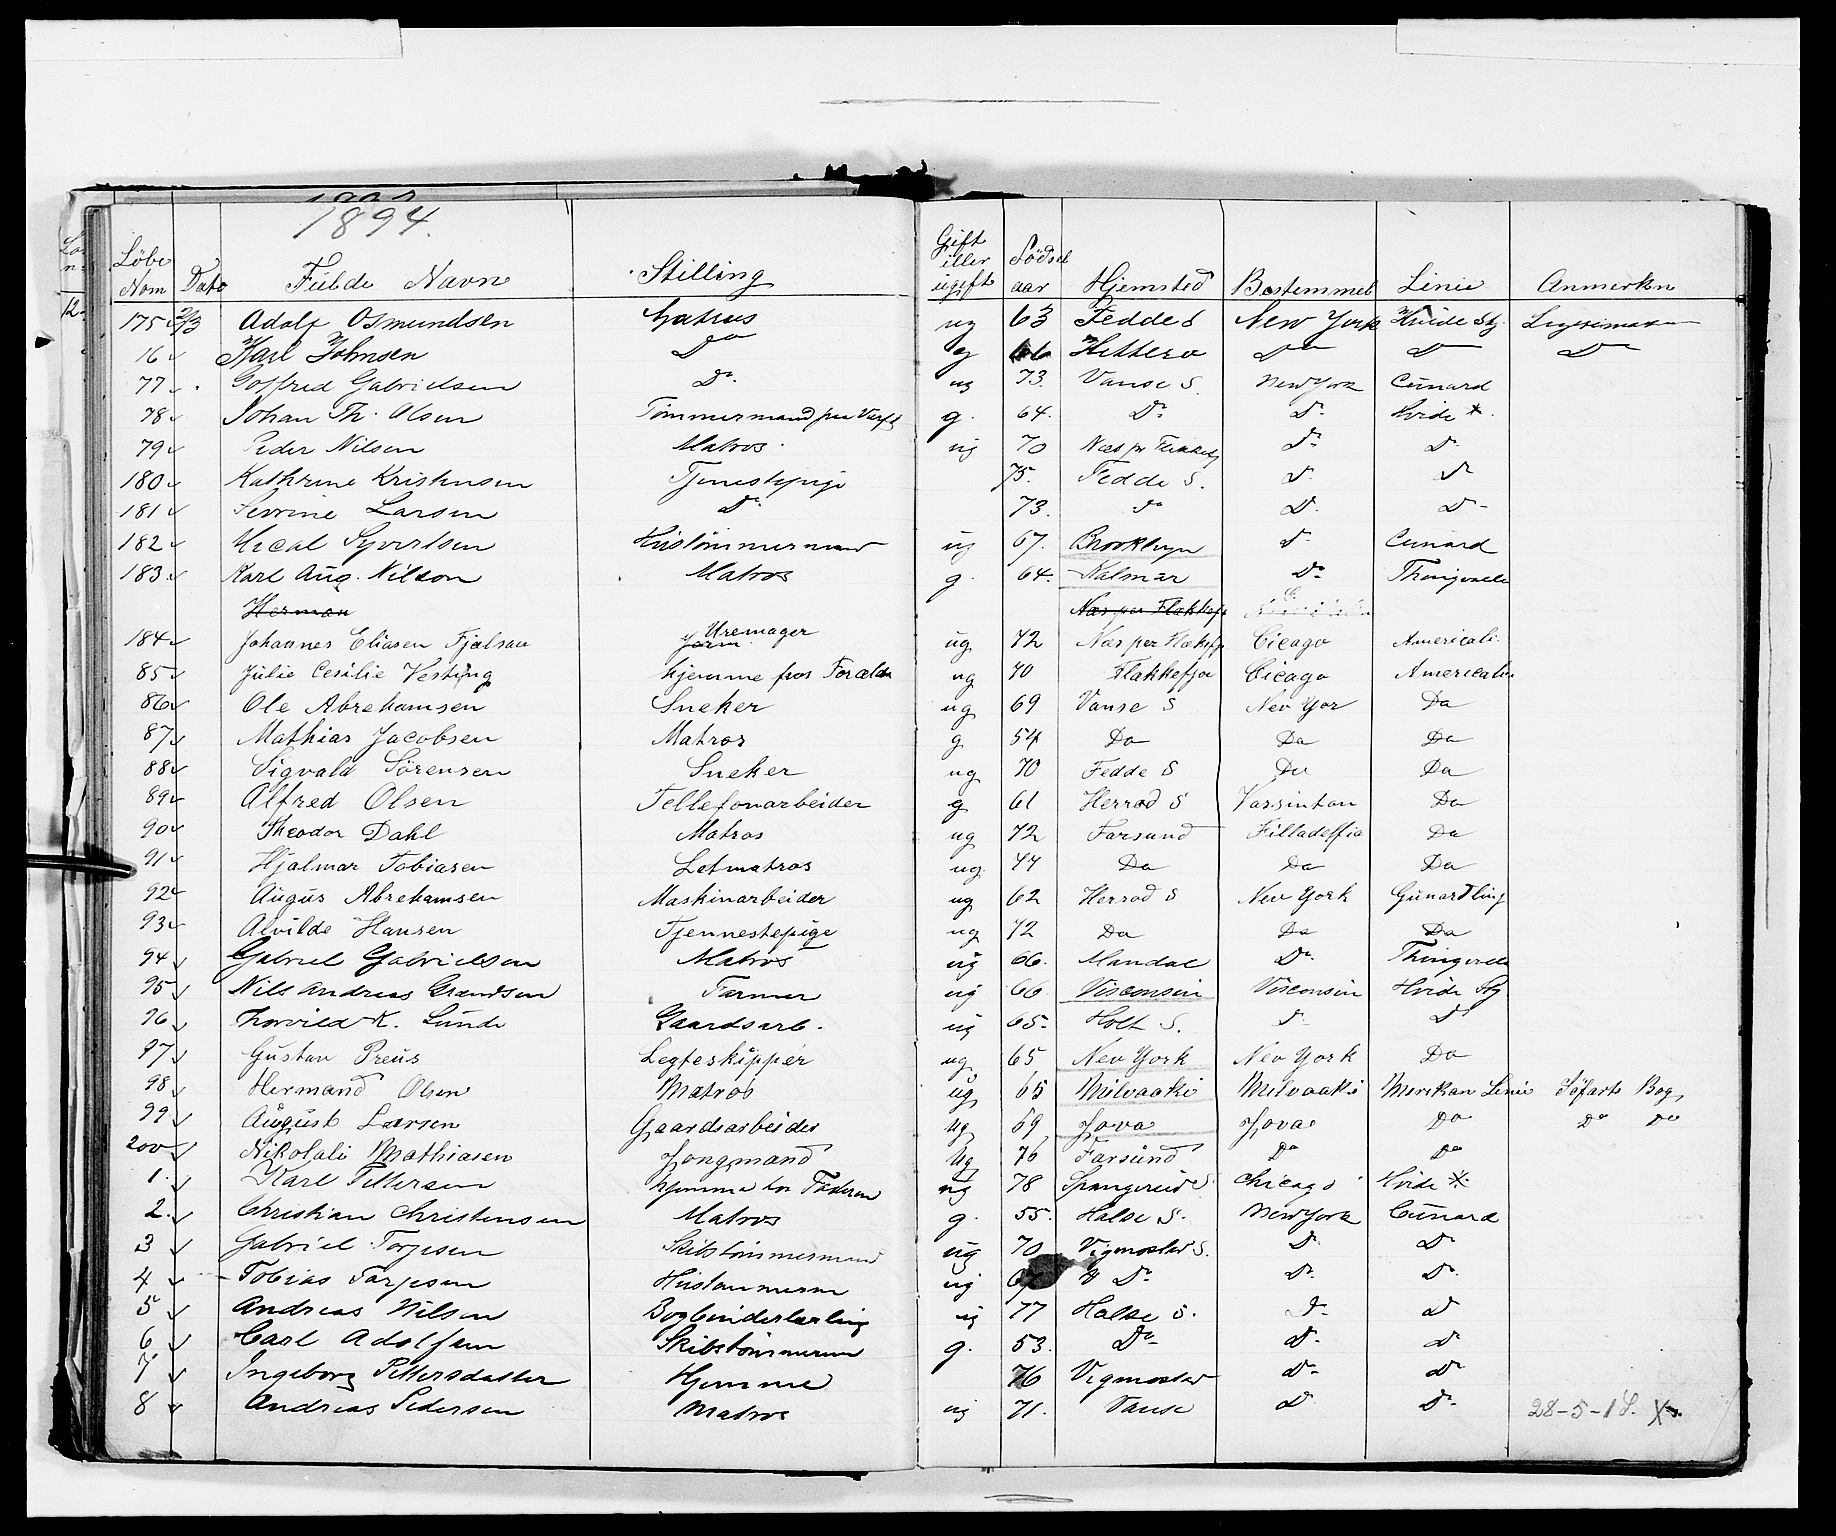 1894.
Löbe Nom Dato Fulde Navn Stilling Gift eller ugift Födsel aar Hjemsted Bestemmel Linie Anmerkn
175 2/3 Adolf Osmundsen Matros ug 63 Fedde S New York Hvide Stj
16 Karl Johnsen Do g 66 Hitterø Do Do Do
77 Gotfred Gabrielsen Do ug 73 Vanse S. New York Cunard
78 Johan Th. Olsen Tømmermand paa Værft g. 64. Do Do Hvide *.
79 Peder Nilsen Matros ug 70 Næs pr Flekkefj Do Do
180 Kathrine Kristensen Tjenestepige 75. Fedde S. Do Do
181 Sevrine Larsen Do 73. Do Do Do
182 Mical Syvertsen Hustömmermand ug 67. Brooklyn Do Cunard
183 Karl Aug. Nilson Matros g. 64. Kalmar Do Thingvalla
Herman Næs per Flekkefj
184 Johannes Eliasen Fjelsaa Uremager ug 72 Næs per Flekefj Cicago Americali
85 Julie Cesilie Vesting hjemme hos Forælder ug 70 Flekkefjor Cicago Americalin
86 Ole Abrehamsen Sneker ug 69 Vanse S Nev Yor Da
87 Mathias Jacobsen Matros g 54 Da Da Da
88 Sigvald Sörensen Sneker ug 70 Fedde S Da Da
89 Alfred Olsen Tellefonarbeider g 61 Herrad S Vassinton Da
90 Theodor Dahl Matros ug 72 Farsund Filladelfia Da
91 Hjalmar Tobiasen Letmatros ug. 77 Da Da Da
92 Augus Abrehamsen Maskinarbeider ug 62 Herrad S Nev York Gunardling
93 Alvilde Hansen Tjennestepige ug 72 Da Da Da
94 Gabriel Gabrielsen Matros ug 66. Mandal Do Thingvalla
95 Nils Andreas Grandsen Farmer ug 66 Visconsin Visconsin Hvide Stj
96 Thorvild K. Lunde Gaardsarb. ug 65. Holt S. Do Do
97 Gustav Preus Legteskipper ug 65 Nev York Nev York Do
98 Hermand Olsen Matros ug 65 Milvaaki Milvaaki Merikan Linie Söfarts Bog
99 August Larsen Gaardsarbeider ug 69 Jova Jova Do Do Do
200 Nikolai Mathiasen Jongmand ug 76 Farsund Do Do
1. Karl Pettersen hjemme hos Faderen ug 78 Spangereid S Chicago Hvide *
2. Christian Christensen Matros g. 55. Halse S. New York Cunard
3 Gabriel Torjesen Skibstømmermand ug 70 Vigmostad S. Do Do
4 Tobias Torjesen Hustømmerm ug Do Do Do
5 Andreas Nilsen Bogbinderlærling ug 77 Halse S. Do Do
6 Carl Adolfsen Skibstømmerm g. 53. Do Do Do
7 Ingeborg Pettersdatter Hjemme 76 Vigmostad Do Do
8 Andreas Pedersen Matros ug 71. Vanse Do Do 28-5-18.